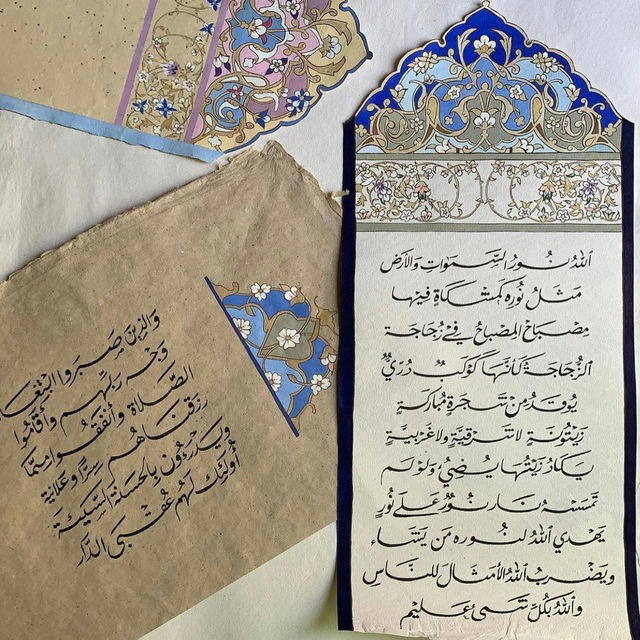 الله نور السموات والأرض
مثل نوره كمشكاة فيها
مصباح المصباح في زجاجة
الزجاجة كأنها كوكب دري
يوقد من شجرة مباركة
زيتونة لا شرقية ولا غربية
يكاد زيتها يضيء ولو لم
تمسسه نار نور على نور
يهدي الله لنوره من يشاء
ويضرب الله الأمثال للناس
والله بكل شيء عليم
والذين صبروا ابتغاء
وجه ربهم وأقاموا
الصلاة وأنفقوا مما
رزقناهم سرا وعلانية
ويدرءون بالحسنة السيئة
أولئك لهم عقبى الدار